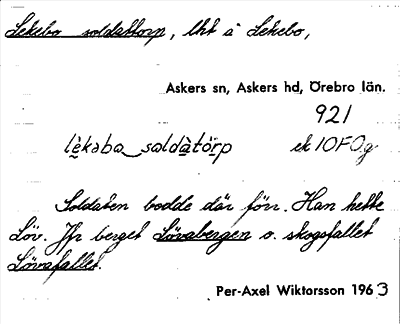 Lekebo soldattorp, lht å Lekebo,
Askers sn, Askers hd, Örebro län.
921
lèkəba soldàtö̀rp ek 10F0g
Soldaten bodde där förr. Han hette
Löv. Jfr berget Lövabergen o. skogsfallet
Lövafallet.
Per-Axel Wiktorsson 1963